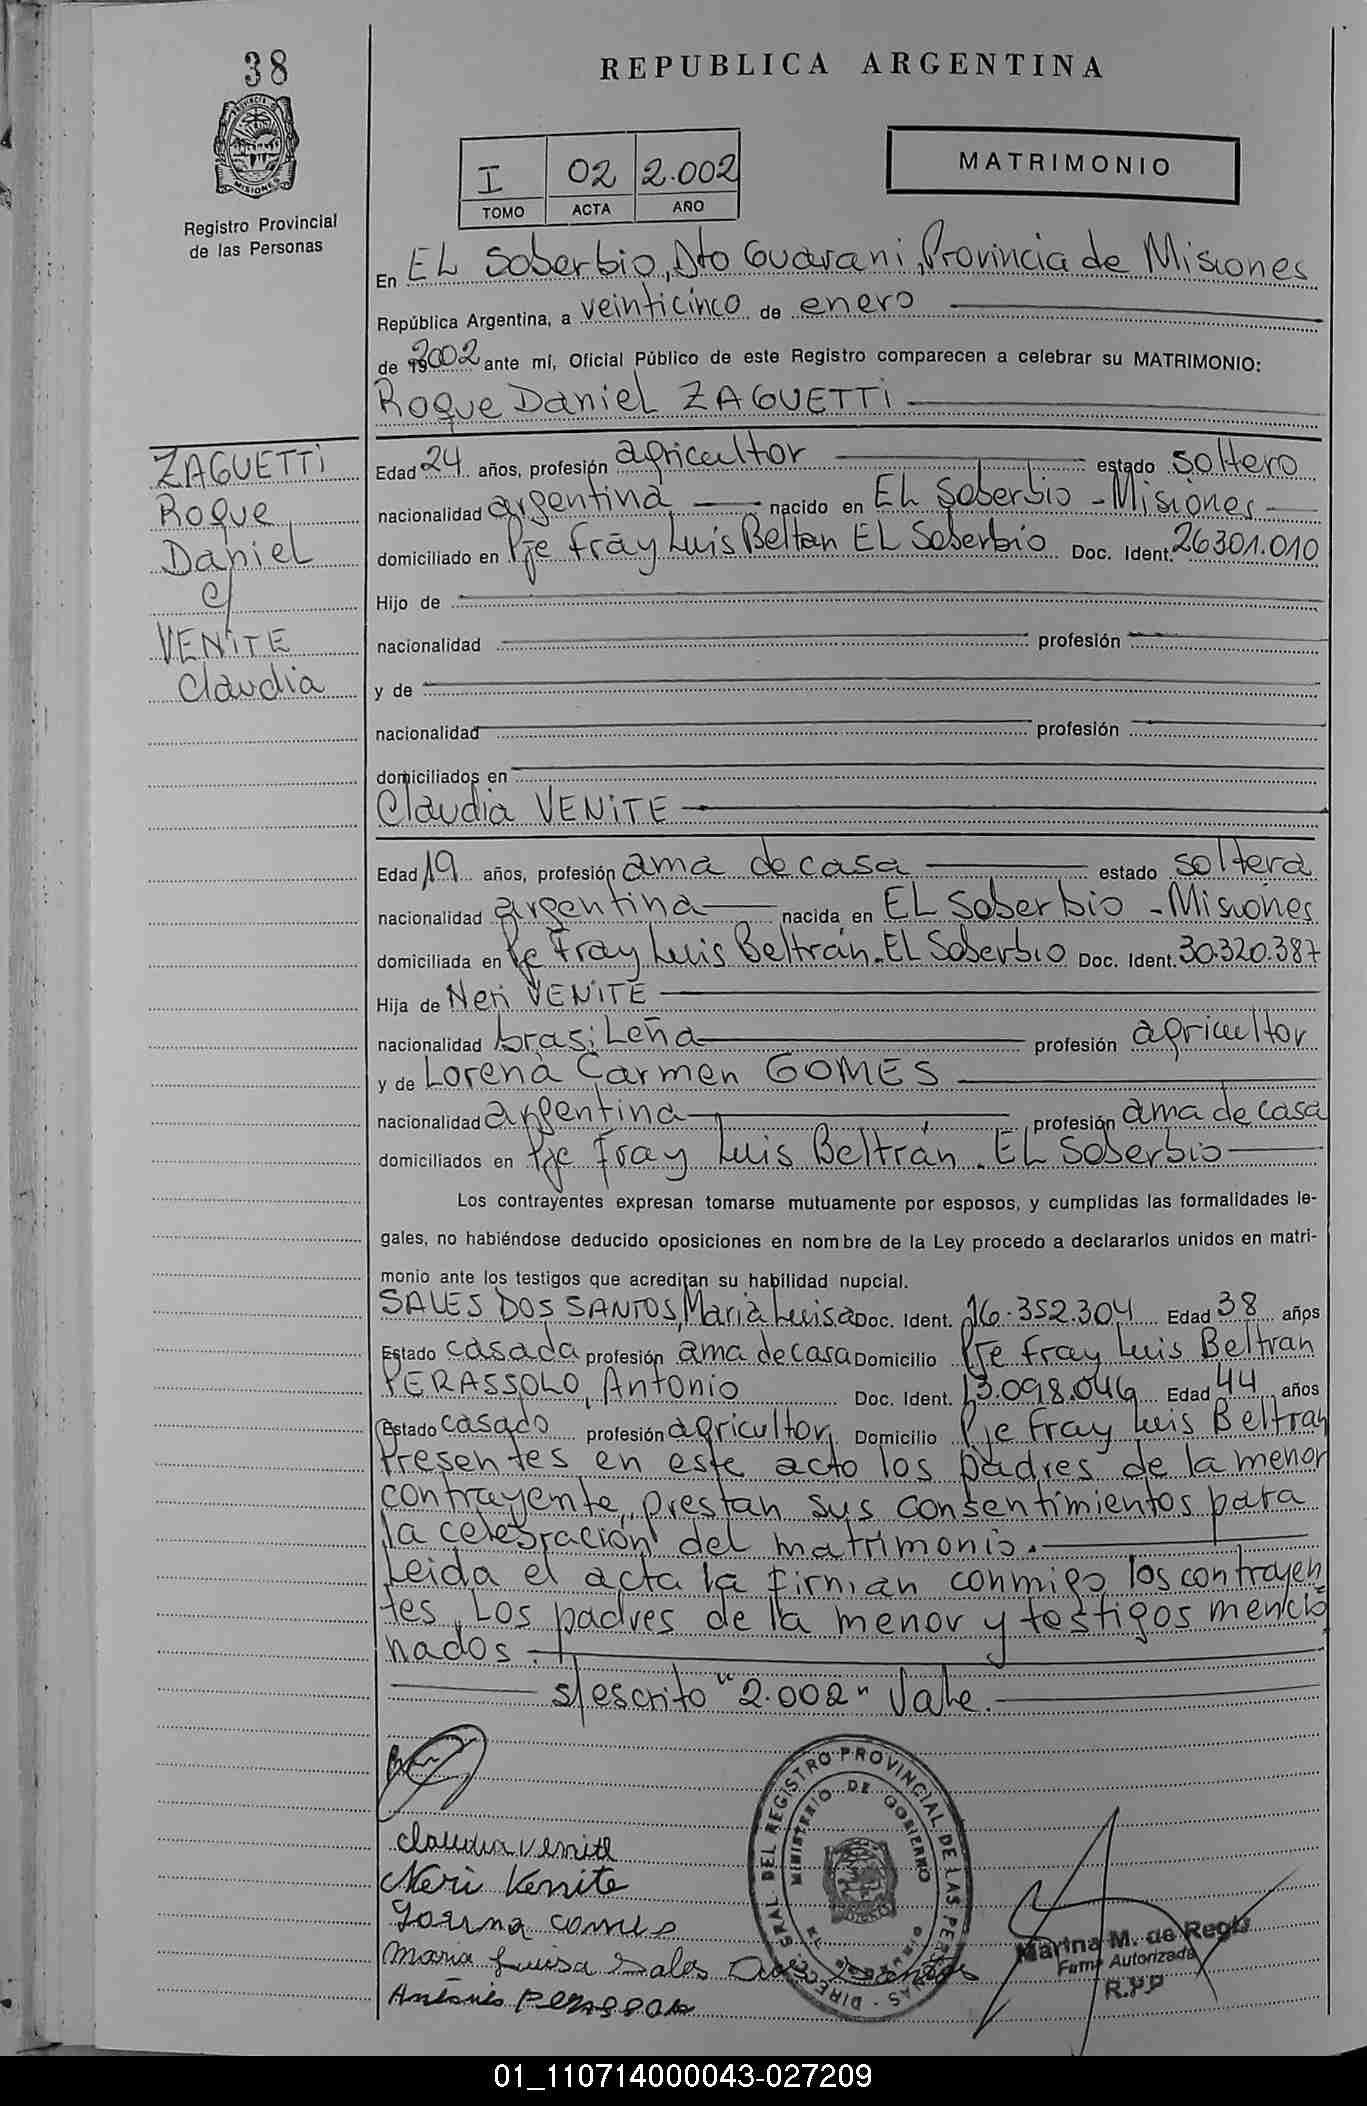 38
REPUBLICA ARGENTINA
PROVINCIA DE
MISIONES
Registro Provincial
de las Personas
I 02 2.002
TOMO ACTA AÑO
MATRIMONIO
En EL Soberbio, Dto Guarani, Provincia de Misiones
República Argentina, a veinticinco de enero
de 2002 ante mí, Oficial Público de este Registro comparecen a celebrar su MATRIMONIO:
Roque Daniel ZAGUETTi
ZAGUETTi
Roque
Daniel
c/
VENiTE
Claudia
Edad 24 años, profesión agricultor estado soltero
nacionalidad argentina nacido en EL Soberbio - Misiones
domiciliado en Pje fray Luis Beltan EL Soberbio Doc. Ident. 26301.010
Hijo de
nacionalidad profesión
y de
nacionalidad profesión
domiciliados en
Claudia VENiTE
Edad 19 años, profesión ama de casa estado soltera
nacionalidad argentina nacida en EL Soberbio - Misiones
domiciliada en Pje Fray Luis Beltrán. EL Soberbio Doc. Ident. 30.320.387
Hija de Neri VENiTE
nacionalidad brasiLeña profesión agricultor
y de Lorena Carmen GOMES
nacionalidad argentina profesión ama de casa
domiciliados en Pje fray Luis Beltrán. EL Soberbio
Los contrayentes expresan tomarse mutuamente por esposos, y cumplidas las formalidades le-
gales, no habiéndose deducido oposiciones en nombre de la Ley procedo a declararlos unidos en matri-
monio ante los testigos que acreditan su habilidad nupcial.
SALES DOS SANTOS, Maria Luisa Doc. Ident. 16.352.304 Edad 38 años
Estado casada profesión ama de casa Domicilio Pje fray Luis Beltran
PERASSOLO, Antonio Doc. Ident. 13.098.046 Edad 44 años
Estado casado profesión agricultor Domicilio Pje Fray Luis Beltran
Presentes en este acto los padres de la menor
contrayente, prestan sus consentimientos para
la celebración del matrimonio.
Leida el acta la firman conmigo los contrayen
tes, Los padres de la menor y testigos mencio
nados.
s/escrito "2.002" Vale.
Claudia Venite
Neri Venite
Lorena Gomes
Maria Luisa Sales Dos Santos
Antonio Perassolo
DIRECC. GRAL. DEL REGISTRO PROVINCIAL DE LAS PERSONAS
MINISTERIO DE GOBIERNO
Marina M. de Regis
Firma Autorizada
R.PP
01_110714000043-027209